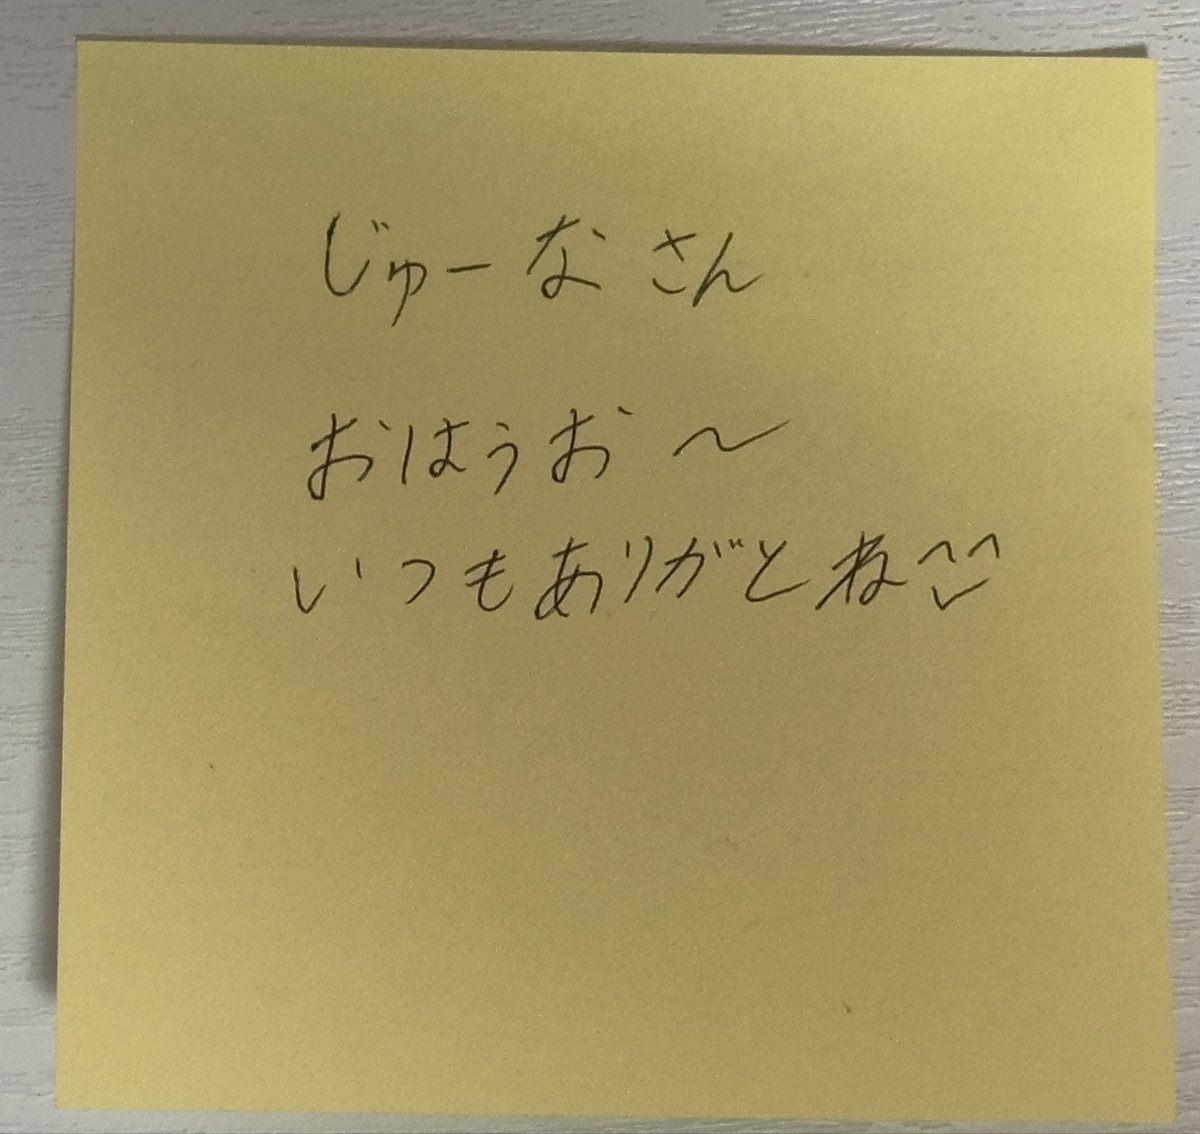 じゅーなさん
おはうお〜
いつもありがとね^^